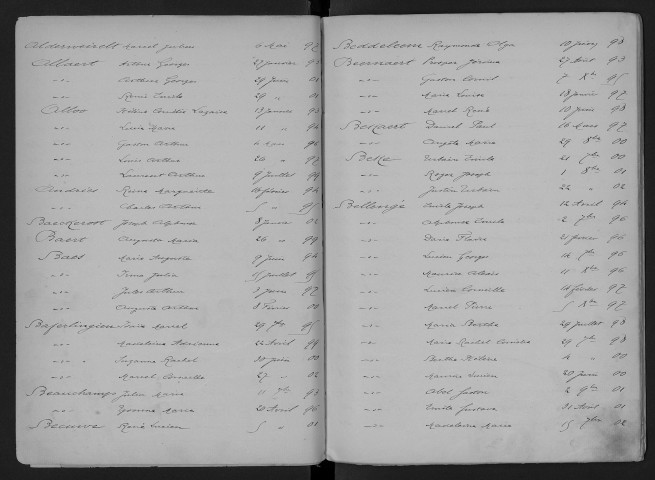 Alderweireldt Marcel Julien 6 Mai 97
Allaert Arthur Georges 27 janvier 93
-"- Arthur Georges 29 Juin 01
-"- René Emile 29 " 01
Allos Camille 18 janvier 93
-"- Lucie Marie 11 " 94
-"- Gaston Arthur 6 Mai 96
-"- Louis Arthur 20 " 97
-"- Laurent Arthur 9 juillet 99
Andries Reine Marguerite 16 février 94
-"- Charles Arthur 5 " 95
Baeckeroot Joseph Alphonse 8 janvier 02
Baert Augusta Maria 26 " 99
Baes Marie Augusta 9 juin 94
-"- Irma Julia 15 juillet 95
-"- Jules Arthur 3 Juin 97
-"- Auguste Arthur 8 Février 00
Marcel 29 7bre 95
-"- Madeleine 22 Avril 99
-"- " Suzanne Rachel 30 Juin 00
-"- Marcel Camille 27 " 02
Beauchamps Julien Marie 11 7bre 93
-"- " Yvonne Marie 20 Avril 96
Beeuwe René Lucien 5 " 01
Beddeleem Raymonde Olga 10 juin 98
Beernaert Prosper Jérome 27 Avril 93
-"- Gaston Camil 7 8bre 95
-"- Marie Louise 18 Janvier 97
-"- Marcel René 10 Juin 98
Bekaert Daniel Paul 16 Mars 97
-"- Angèle Marie 29 8bre 00
Beke Emile 21 7bre 00
-"- Roger Joseph 1 8bre 01
-"- Justin 22 " 02
Bellengé Emile Joseph 12 Avril 94
-"- Alphonse Emile 2 7bre 96
-"- 21 février 96
-"- Lucien Georges 14 7bre 96
-"- Maurice Alexis 11 8bre 96
-"- Lucien Corneille 14 février 97
-"- Marcel Pierre 5 8bre 97
-"- Maria Berthe 29 Juillet 98
-"- Marie Rachel 29 7bre 98
-"- Berthe Hélène 4 " 00
-"- Maurice Lucien 20 Juin 00
-"- Abel Gaston 2 9bre 01
-"- Emile Gustave 21 Avril 01
-"- Madeleine Marie 5 7bre 02